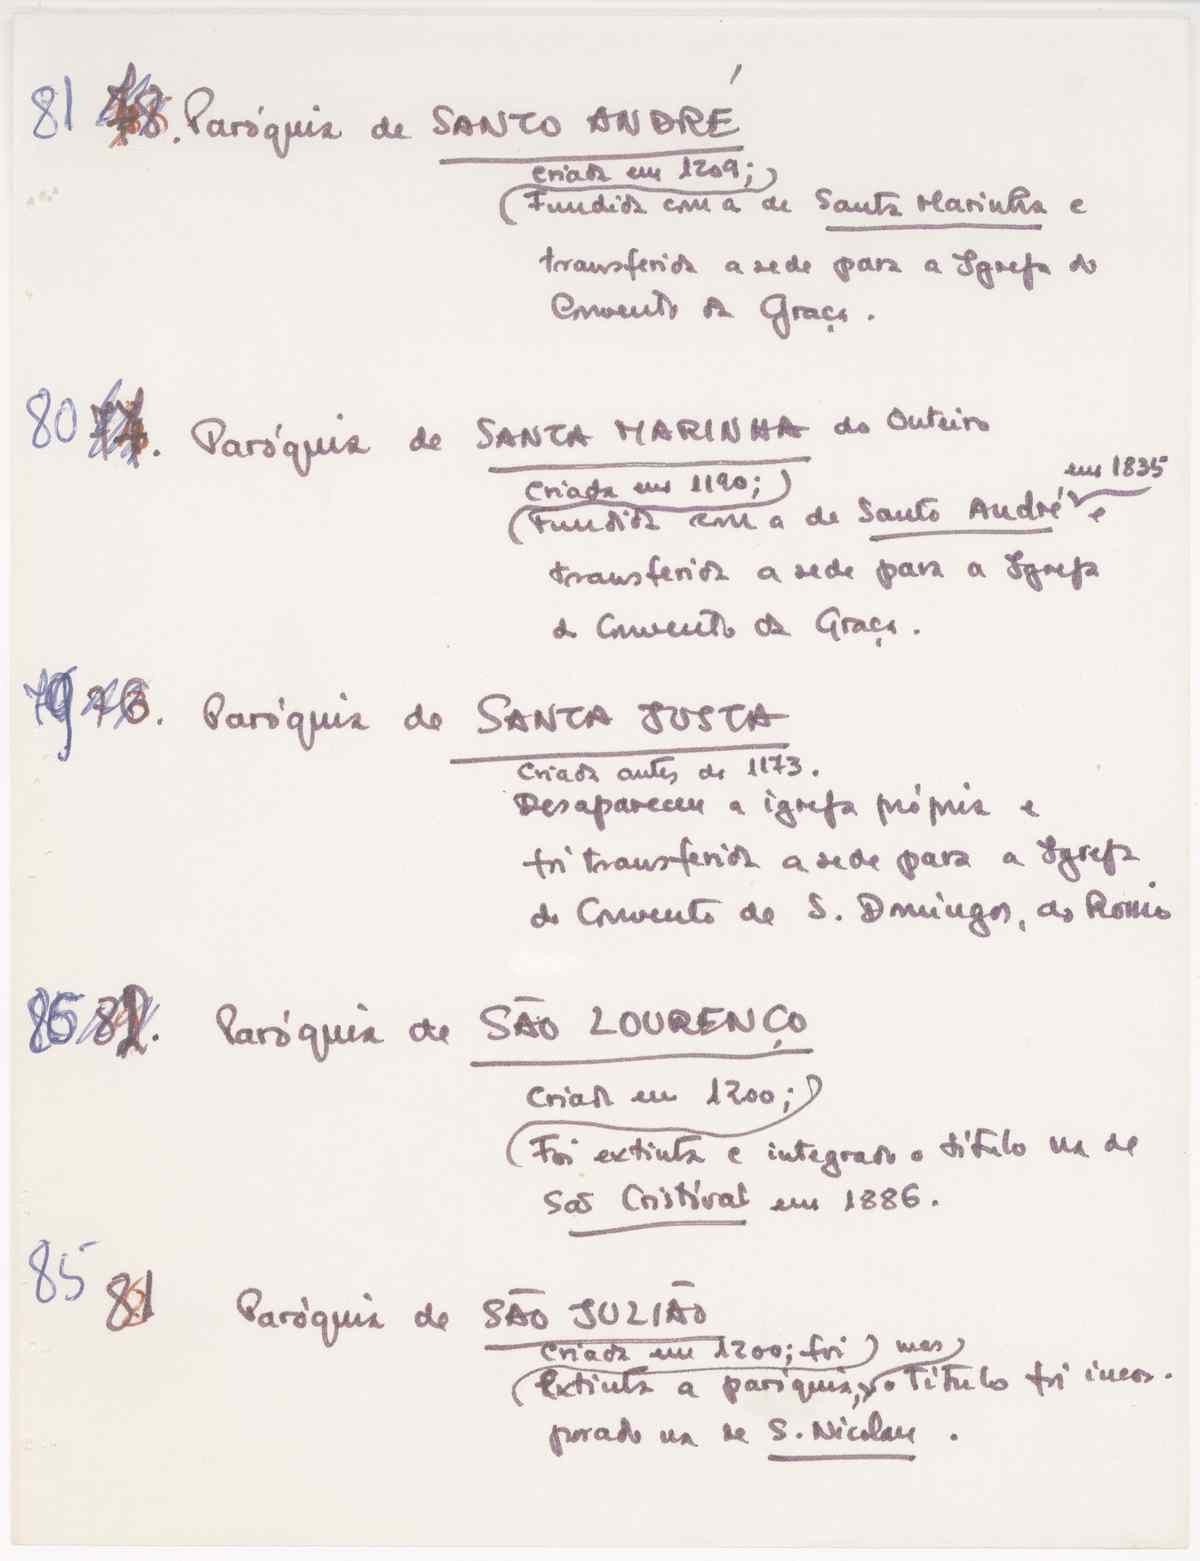 81 78. Paróquia de SANTO ANDRÉ
criada em 1209;
(Fundida com a de Santa Marinha e
transferida a sede para a Igreja do
Convento da Graça.
80 . Paróquia de SANTA MARINHA do Outeiro
criada em 1190;
em 1835
(Fundida com a de Santo André e
transferida a sede para a Igreja
do Convento da Graça.
79 76. Paróquia de SANTA JUSTA
Criada antes de 1173.
Desapareceu a igreja própria e
foi transferida a sede para a Igreja
do Convento de S. Domingos, ao Rossio
86 82. Paróquia de SÃO LOURENÇO
Criada em 1200;
(Foi extinta e integrado o título na de
São Cristóval em 1886.
85 81 Paróquia de SÃO JULIÃO
Criada em 1200; foi mas
(Extinta a paróquia, o Título foi incor-
porado na de S. Nicolau.